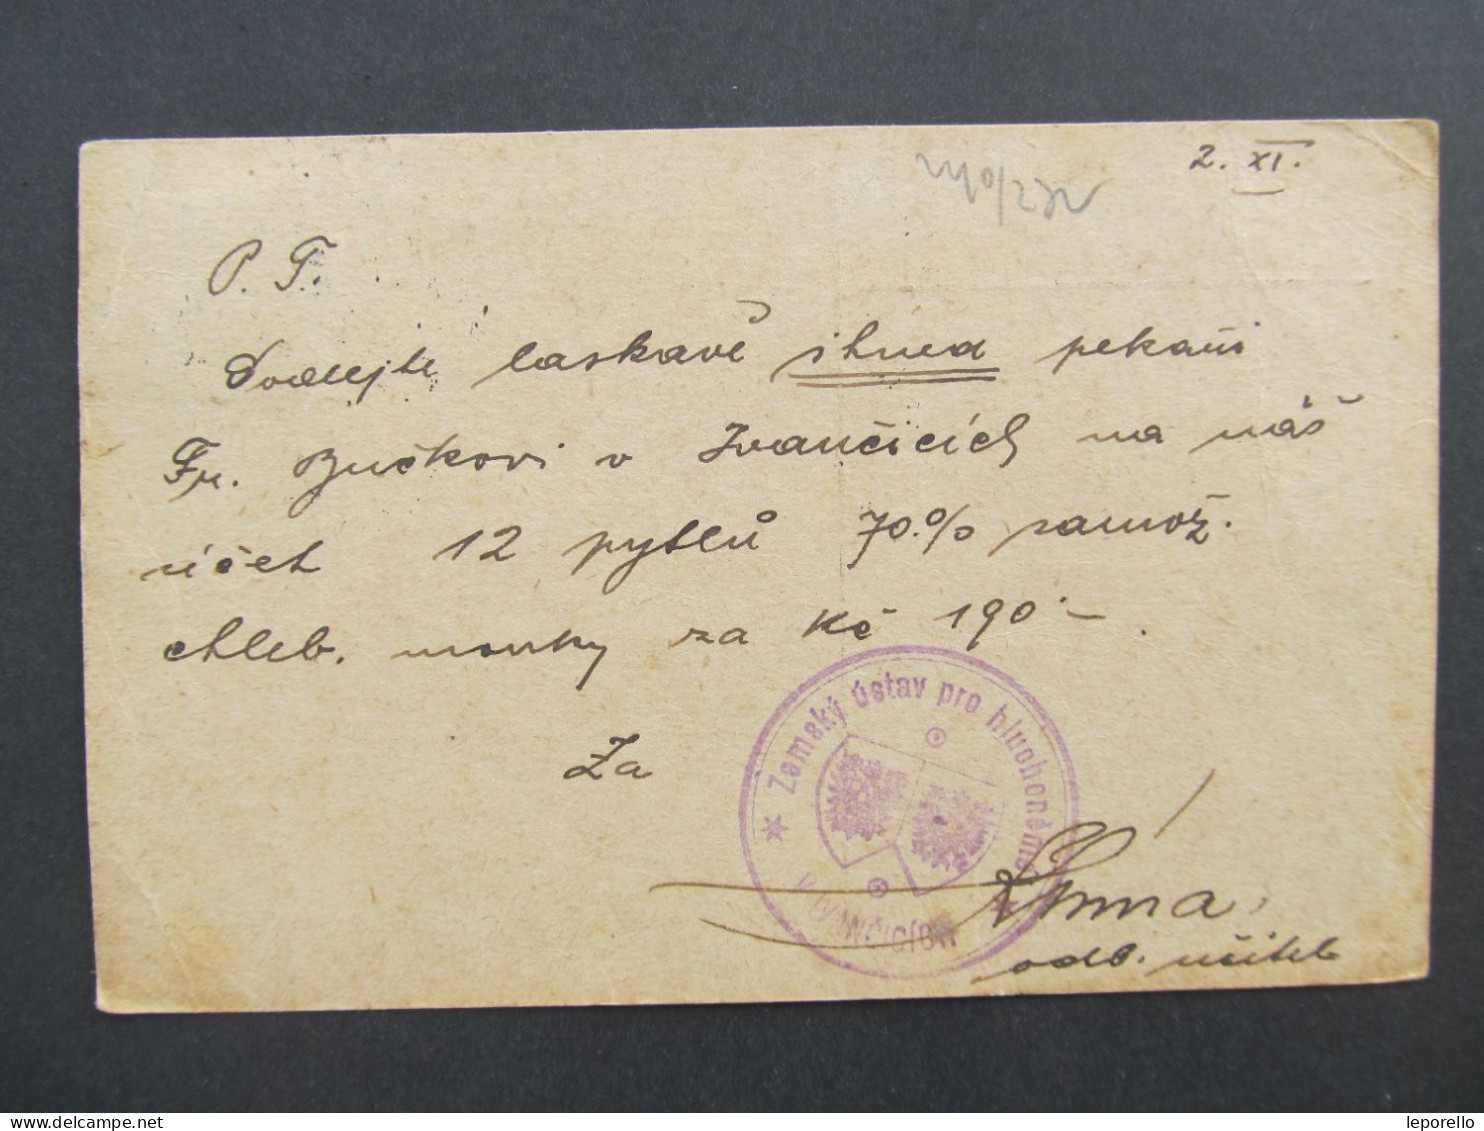 2. XI.
P. T.
Dodejte laskavě ihned pekaři
Fr. Bučkovi v Ivančicích na náš
účet 12 pytlů 70.% samož.
chleb. mouky za Kč 190·–.
Za
* Zemský ústav pro hluchoněmé *
V IVANČICÍCH
odb. učitel
leporello